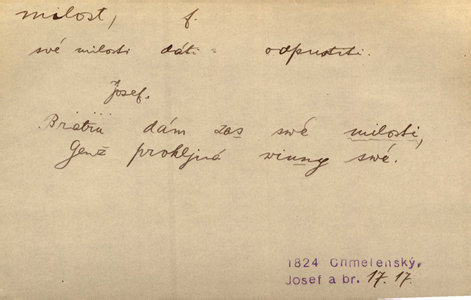 milost, f.
své milosti dáti = odpustiti.
Josef.
Bratru dám zas své milosti,
Genž proklíná winny své.
1824 Chmelenský,
Josef a br. 17.17.